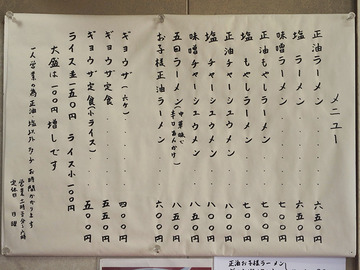 メニュー
正油ラーメン 六五〇円
塩ラーメン 六五〇円
味噌ラーメン 七〇〇円
正油もやしラーメン 七〇〇円
塩もやしラーメン 七〇〇円
正油チャーシュウメン 八〇〇円
塩チャーシュウメン 八〇〇円
味噌チャーシュウメン 八五〇円
五目ラーメン(中華風で辛口あんかけ) 八五〇円
お子様正油ラーメン 六〇〇円
ギョウザ(六ケ) 四〇〇円
ギョウザ定食 六〇〇円
ギョウザ定食(小ライス) 五五〇円
ライス 一五〇円 ライス小 一〇〇円
大盛は一〇〇円増しです
一人営業の為正油 塩以外 少々お時間かかります
定休日 日曜
正油お子様ラーメン